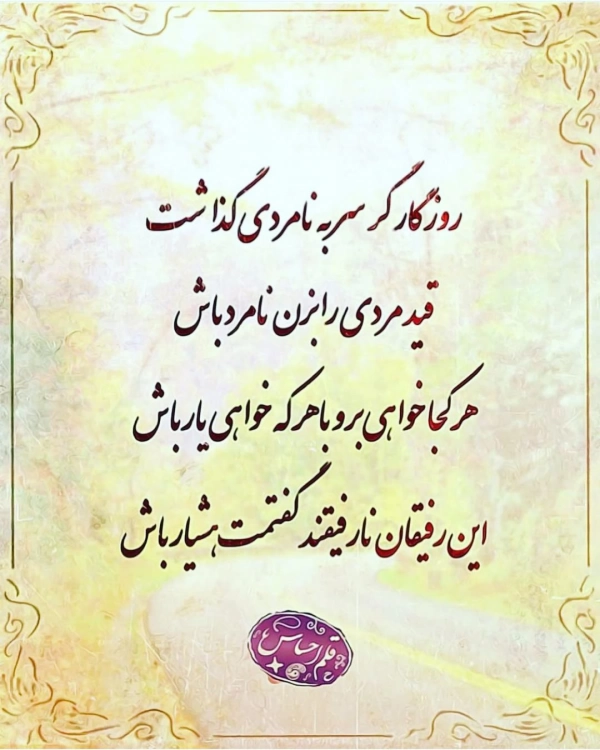 روزگار گر سر به نامردی گذاشت
قید مردی را بزن نامرد باش
هر کجا خواهی برو با هر که خواهی یار باش
این رفیقان نارفیقند گفتمت هشیار باش
قلم احساس